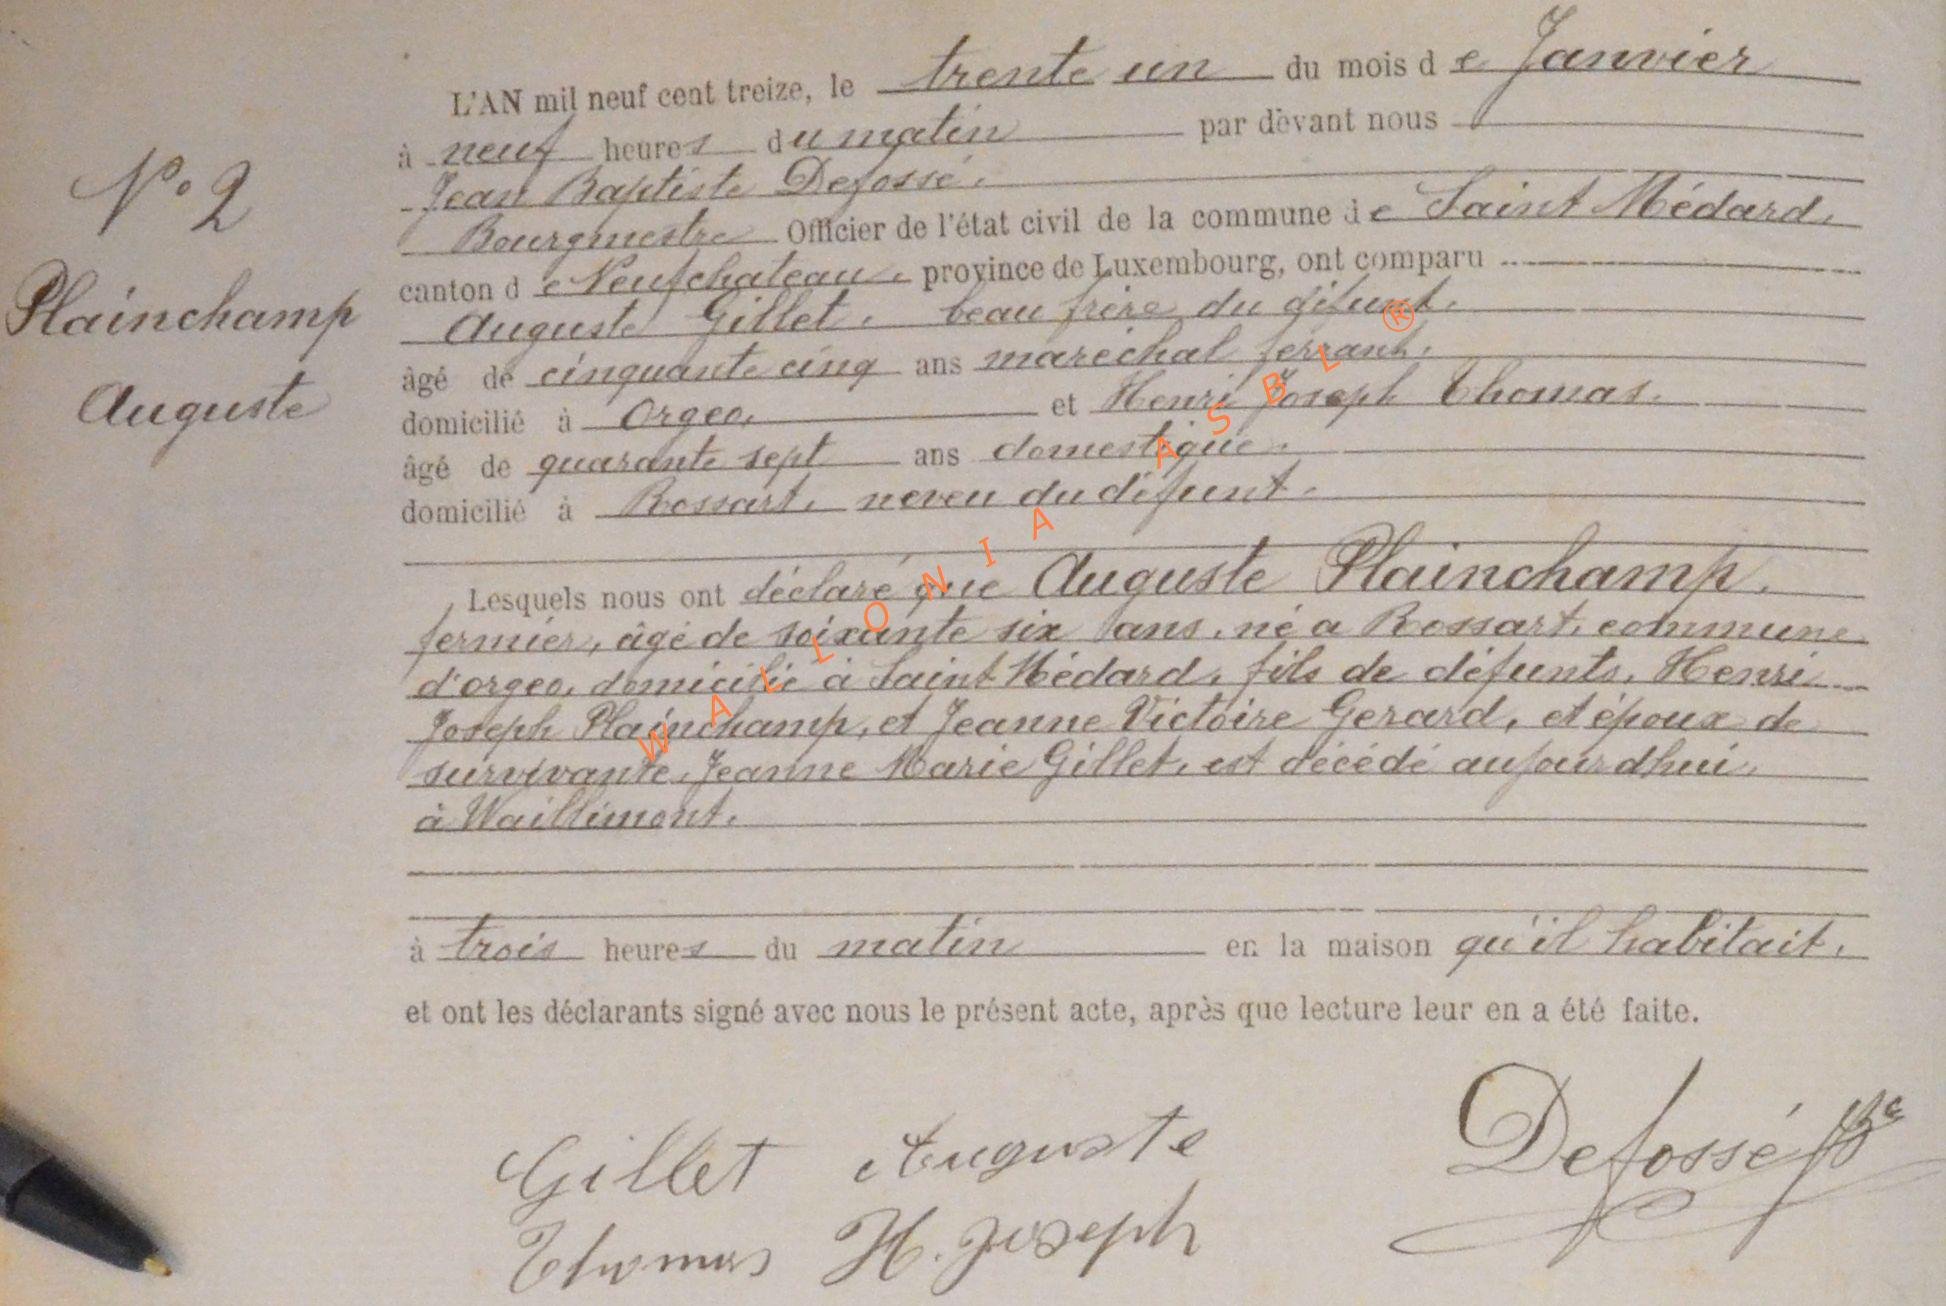 L'AN mil neuf cent treize, le trente un du mois de Janvier
à neuf heures du matin par devant nous
Jean Baptiste Defossé.
Bourgmestre Officier de l'état civil de la commune de Saint Médard,
canton de Neufchateau, province de Luxembourg, ont comparu
Auguste Gillet, beau frère du défunt.
âgé de cinquante cinq ans maréchal ferrant.
domicilié à Orgeo, et Henri Joseph Thomas.
âgé de quarante sept ans domestique.
domicilié à Rossart, neveu du défunt.
N° 2
Plainchamp
Auguste
Lesquels nous ont déclaré que Auguste Plainchamp,
fermier, âgé de soixante six ans, né a Rossart, commune
d'orgeo, domicilié à Saint Médard, fils de défunts, Henri
Joseph Plainchamp, et Jeanne Victoire Gerard, et époux de
survivante, Jeanne Marie Gillet, est décédé aujourdhui,
à Waillimont.
à trois heures du matin en la maison qu'il habitait,
et ont les déclarants signé avec nous le présent acte, après que lecture leur en a été faite.
Gillet Auguste
Thomas H. Joseph
Defossé
WALLONIA ASBL ®